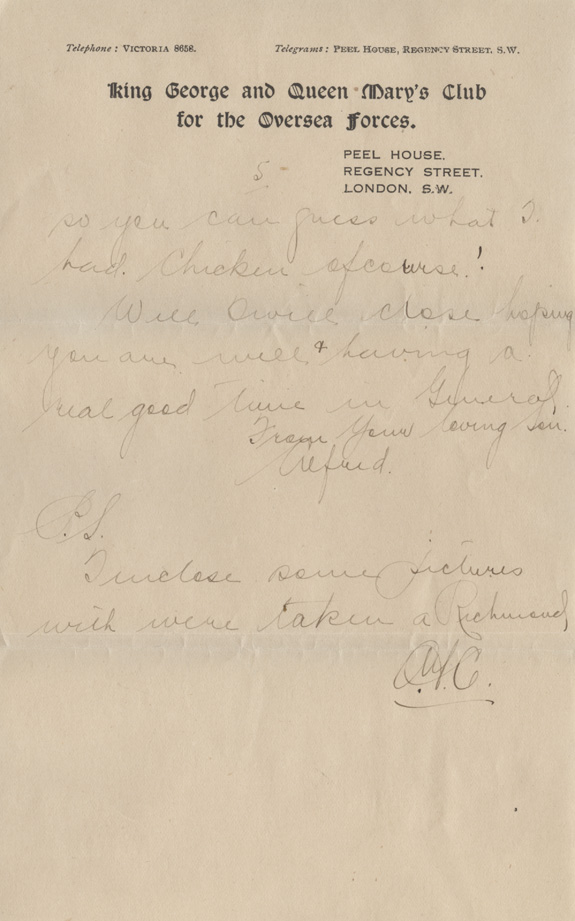 Telephone: VICTORIA 8658. Telegrams: PEEL HOUSE, REGENCY STREET. S.W.
King George and Queen Mary's Club
for the Oversea Forces.
PEEL HOUSE.
REGENCY STREET.
LONDON. S.W.
5.
so you can guess what I
had. Chicken ofcourse.!
Well I will close hoping
you are well & having a
real good time in General.
From Your loving Son.
Alfred.
P.S.
I inclose some pictures
with were taken a Richmond